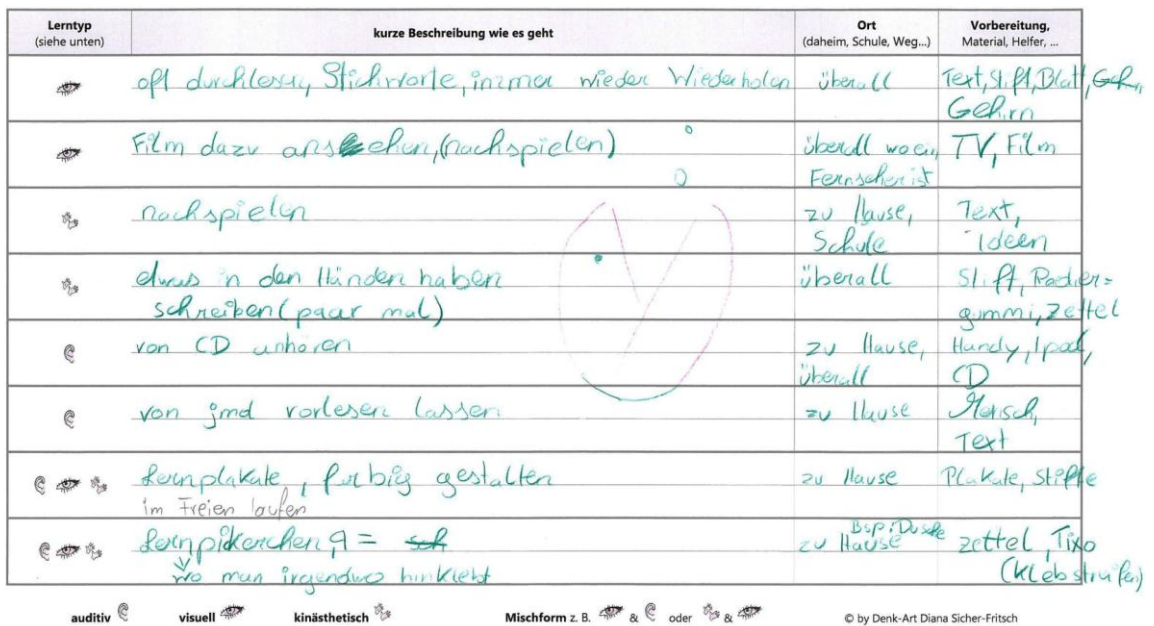 Lerntyp
(siehe unten)
kurze Beschreibung wie es geht
Ort
(daheim, Schule, Weg...)
Vorbereitung,
Material, Helfer, ...
oft durchlesen, Stichworte, immer wieder Wiederholen
überall
Text, Stift, Blatt,
Gehirn
Film dazu ansehen, (nachspielen)
überall wo ein
Fernseher ist
TV, Film
nachspielen
zu Hause,
Schule
Text,
Ideen
etwas in den Händen haben
schreiben (paar mal)
überall
Stift, Radier=
gummi, Zettel
von CD anhören
zu Hause,
überall
Handy, Ipod,
CD
von jmd vorlesen lassen
zu Hause
Mensch,
Text
Lernplakate, farbig gestalten
im Freien laufen
zu Hause
Plakate, Stifte
Lernpikerchen =
wo man irgendwo hinklebt
Bsp: Dusche
zu Hause
Zettel, Tixo
(Klebstreifen)
auditiv visuell kinästhetisch Mischform z. B. & oder & © by Denk-Art Diana Sicher-Fritsch